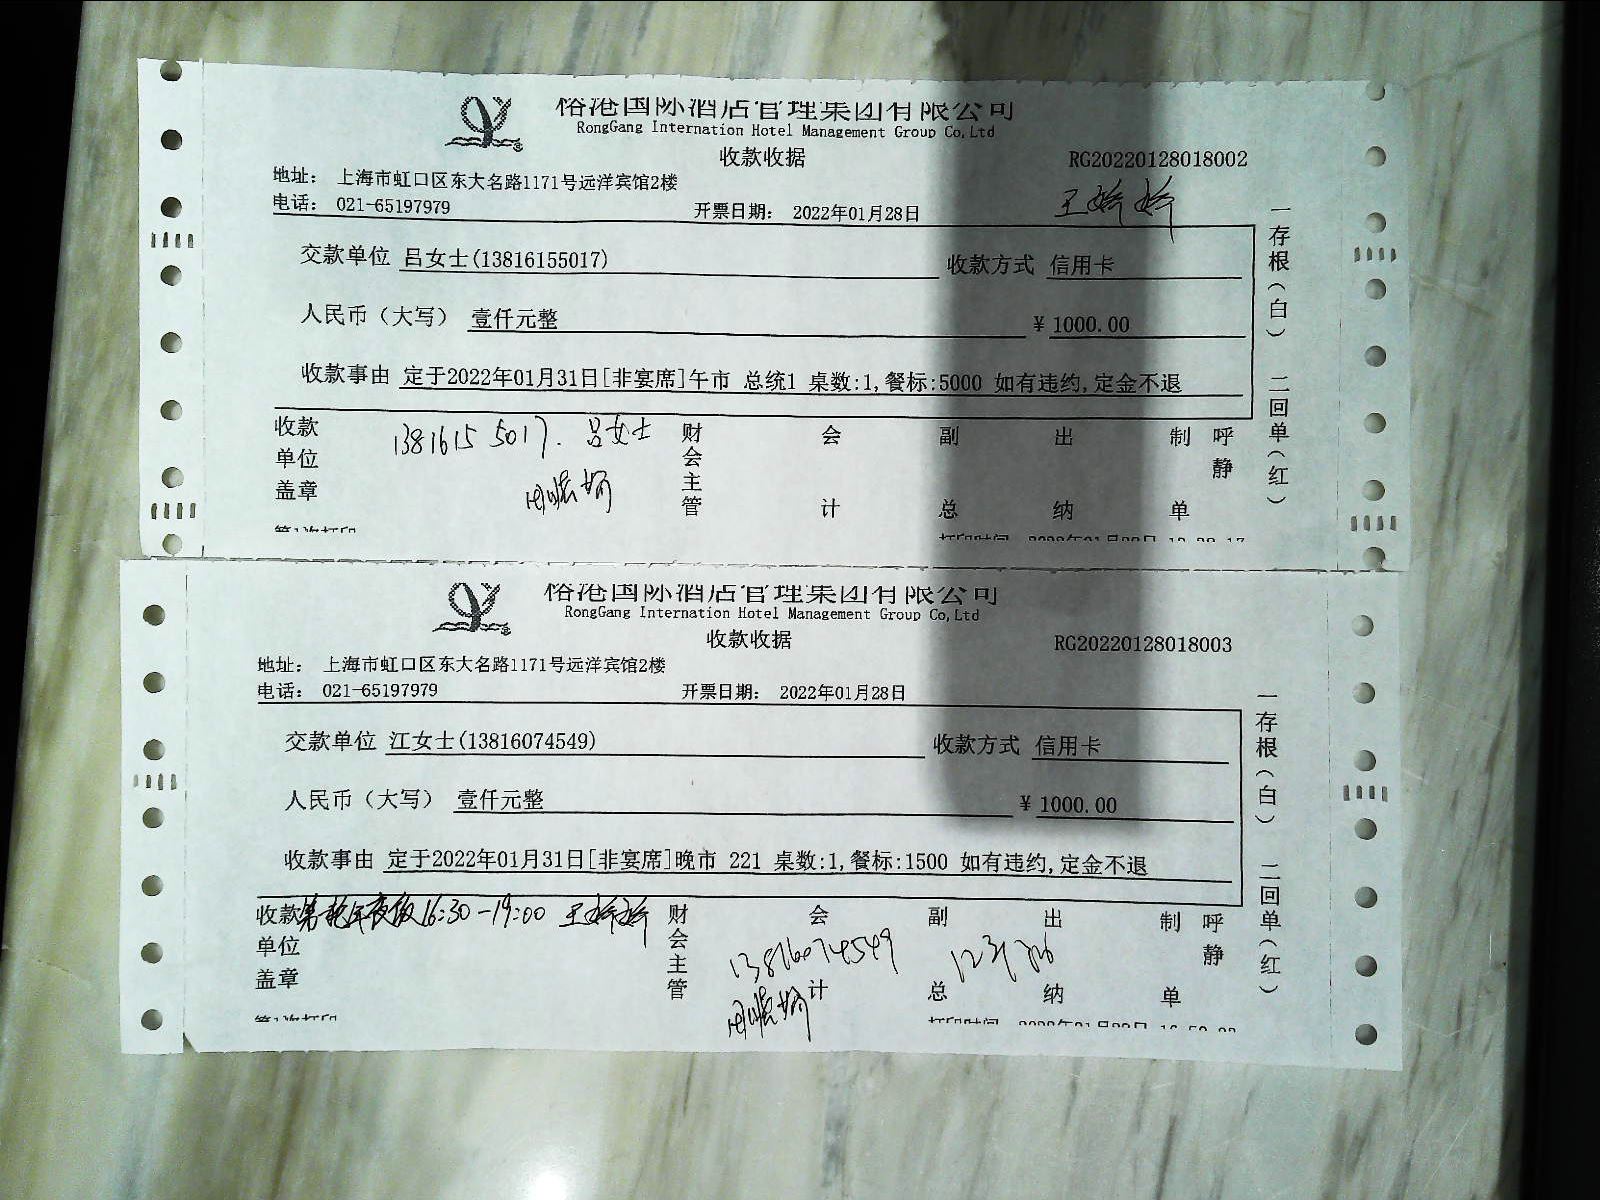 榕港国际酒店管理集团有限公司
RongGang Internation Hotel Management Group Co,Ltd
收款收据
RG20220128018002
地址： 上海市虹口区东大名路1171号远洋宾馆2楼
电话： 021-65197979
开票日期： 2022年01月28日
王娇娇
交款单位 吕女士(13816155017)
收款方式 信用卡
人民币（大写） 壹仟元整
¥ 1000.00
收款事由 定于2022年01月31日[非宴席]午市 总统1 桌数:1,餐标:5000 如有违约,定金不退
一存根（白） 二回单（红）
收款单位盖章
13816155017. 吕女士
财会主管
会计
副总
出纳
制单
呼静
第1次打印
榕港国际酒店管理集团有限公司
RongGang Internation Hotel Management Group Co,Ltd
收款收据
RG20220128018003
地址： 上海市虹口区东大名路1171号远洋宾馆2楼
电话： 021-65197979
开票日期： 2022年01月28日
交款单位 江女士(13816074549)
收款方式 信用卡
人民币（大写） 壹仟元整
¥ 1000.00
收款事由 定于2022年01月31日[非宴席]晚市 221 桌数:1,餐标:1500 如有违约,定金不退
一存根（白） 二回单（红）
收款单位盖章
年夜饭 16:30-19:00 王娇娇
财会主管
会计
13816074549
副总
出纳
制单
呼静
第1次打印